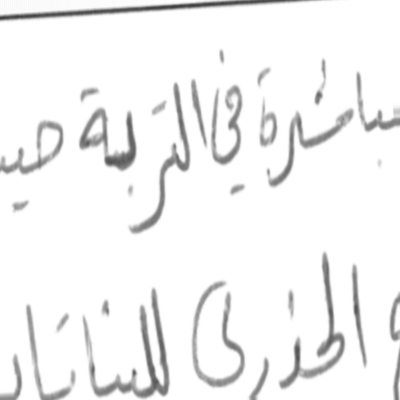 مباشرة في التربة حيـ
الجذرى للنباتات